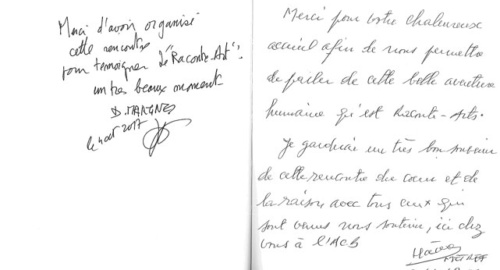 Merci d'avoir organisé
cette rencontre
pour témoigner de "Raconte-Art".
un très beau moment
le 4 oct 2017
Merci pour votre chaleureux
accueil afin de nous permettre
de parler de cette belle aventure
humaine qu'est Raconte-Arts.
Je garderai un très bon souvenir
de cette rencontre du cœur et de
la raison avec tous ceux qui
sont venus nous soutenir, ici chez
vous à l'ACB